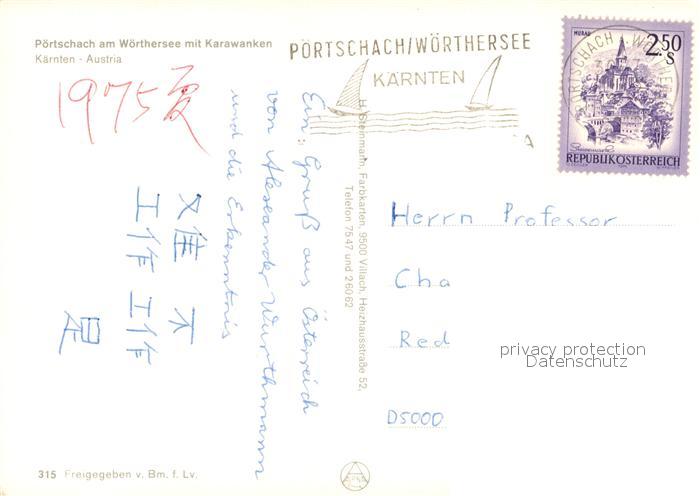 Pörtschach am Wörthersee mit Karawanken
Kärnten - Austria
1975 夏
PÖRTSCHACH/WÖRTHERSEE
KÄRNTEN
MURAU
2.50
S
Steiermark
REPUBLIK ÖSTERREICH
Ein Gruß aus Österreich
von Alexander Wurthmann
und die Erkenntnis
又佳 不
工作 工作
是
H. Steinmann, Farbkarten, 9500 Villach, Heizhausstraße 52,
Telefon 75 47 und 260 62
Herrn Professor
Cha
Red
D5000
privacy protection
Datenschutz
315 Freigegeben v. Bm. f. Lv.